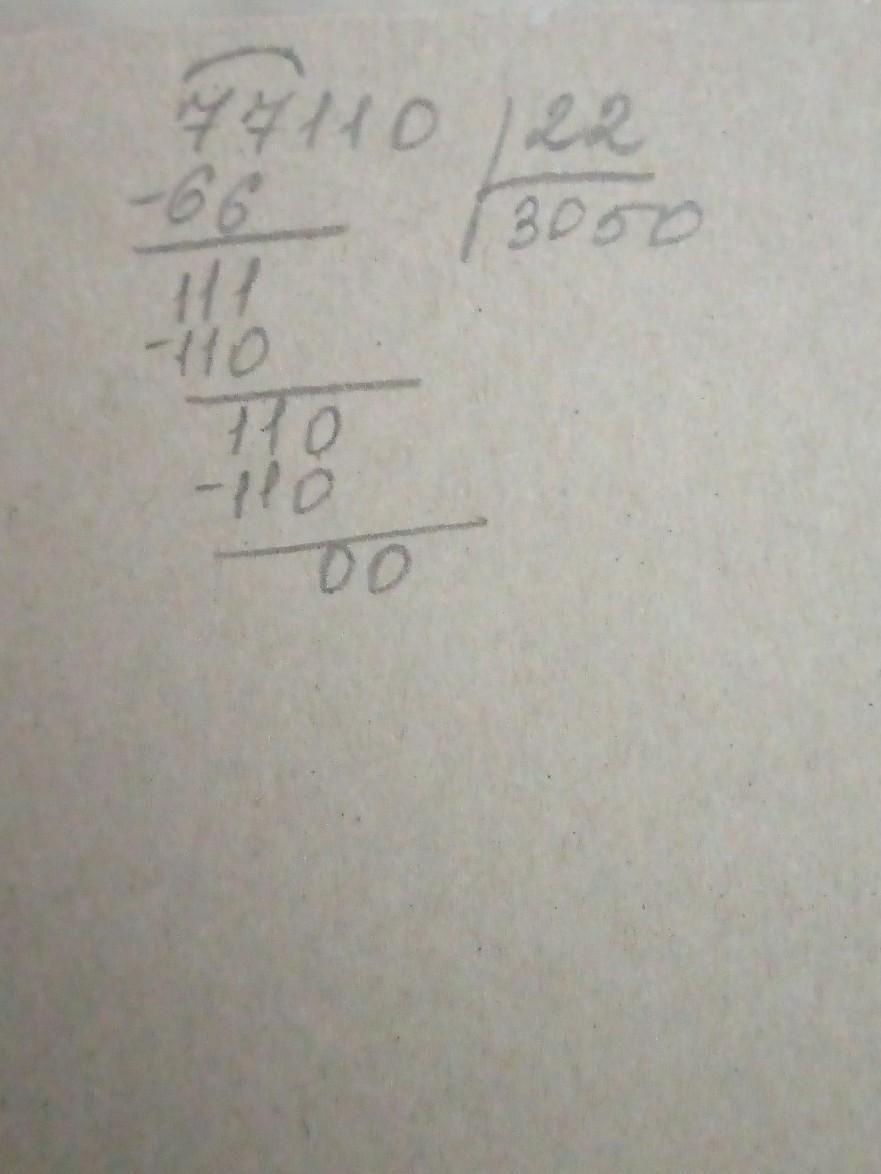 77110 22
-66 3050
111
-110
110
-110
00